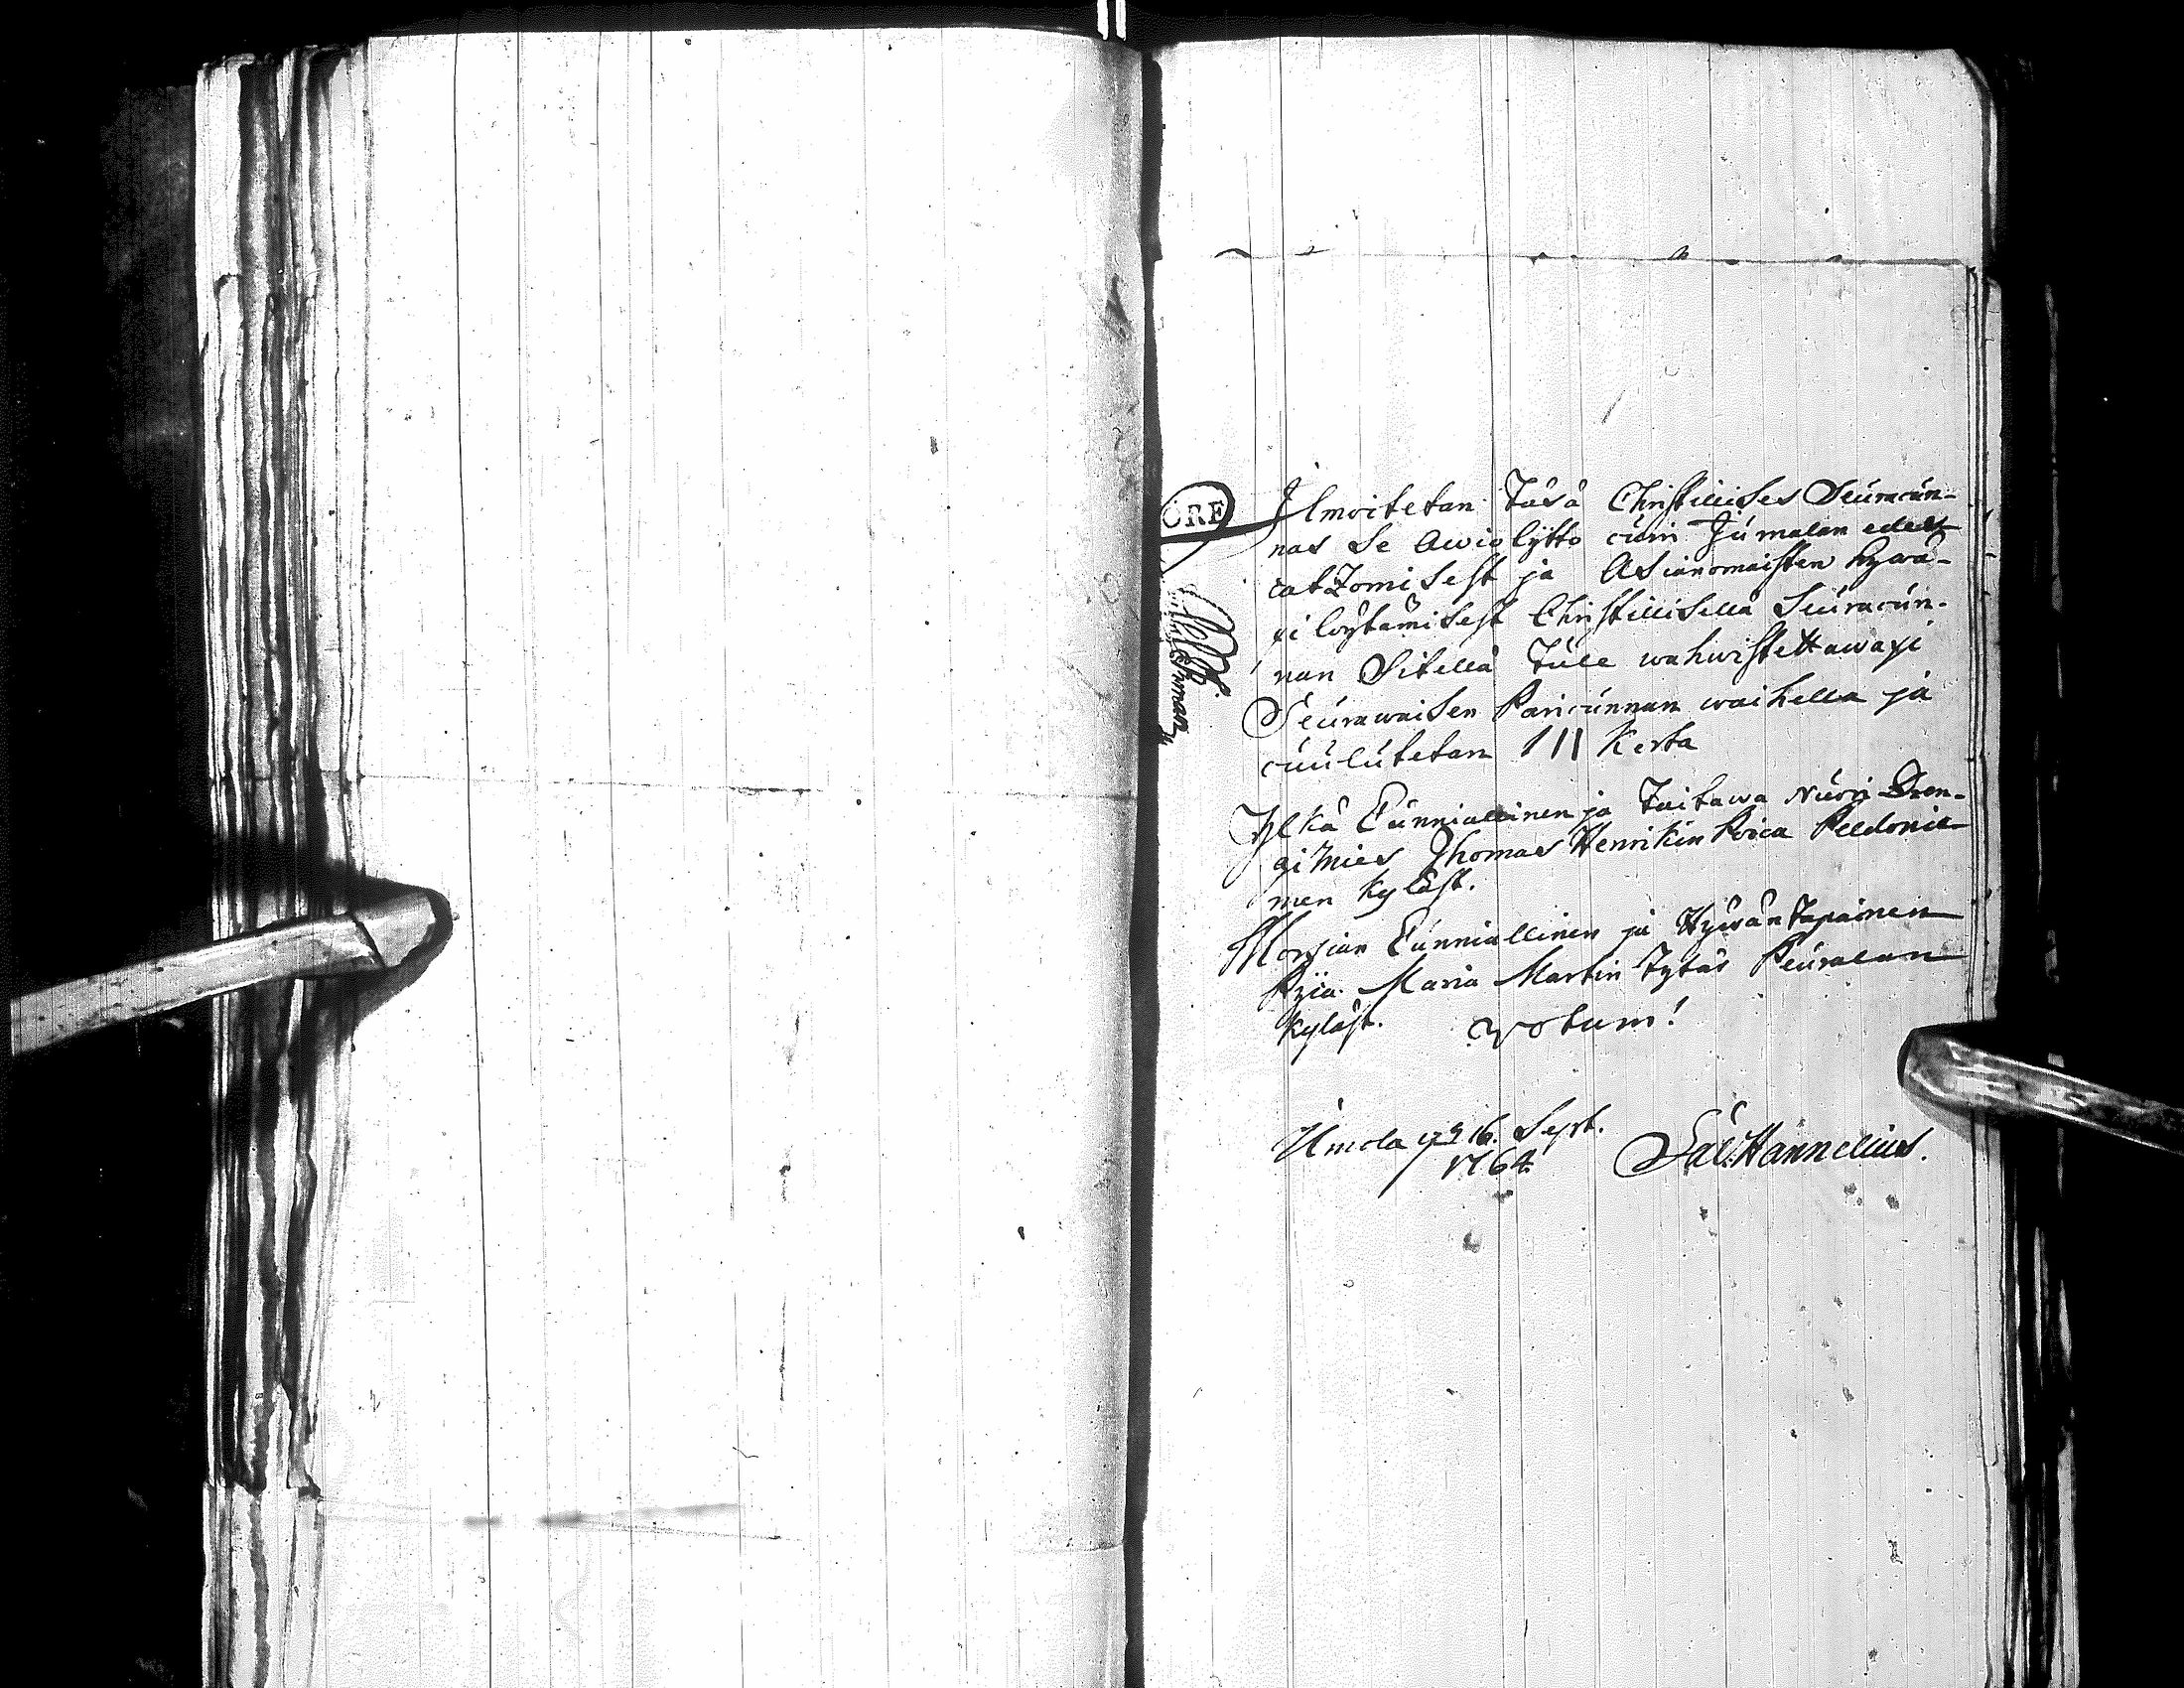 ÖRE
Ilmoitetan Täsä Christillises Seuracun-
nas se Awiolijtto cuin Jumalan edes-
catzomisest ja Asianomaisten hywä-
xi löytämisest Christillisellä Seuracun-
nan Sitellä Tule wahwistettawaxi
Seurawaisen Paricunnan waihella ja
cuulutetan III Kerta
Ylkä Cunniallinen ja Taitawa Nuori Dren-
gi Mies Thomas Henrikin Poica Peldonie-
men Kyläst.
Morsian Cunniallinen ja Hywän Tapainen
Pijca Maria Martin Tytär Peuralan
Kyläst. Votum!
Umola d. 16. Sept.
1764
Sal. Hannelius.